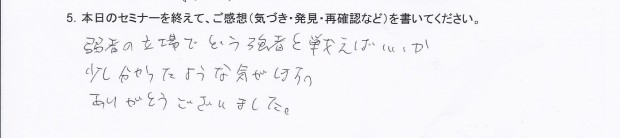 5. 本日のセミナーを終えて、ご感想(気づき・発見・再確認など)を書いてください。
弱者の立場でどいう強者と戦えばいいか
少し分かったような気がします。
ありがとうございました。